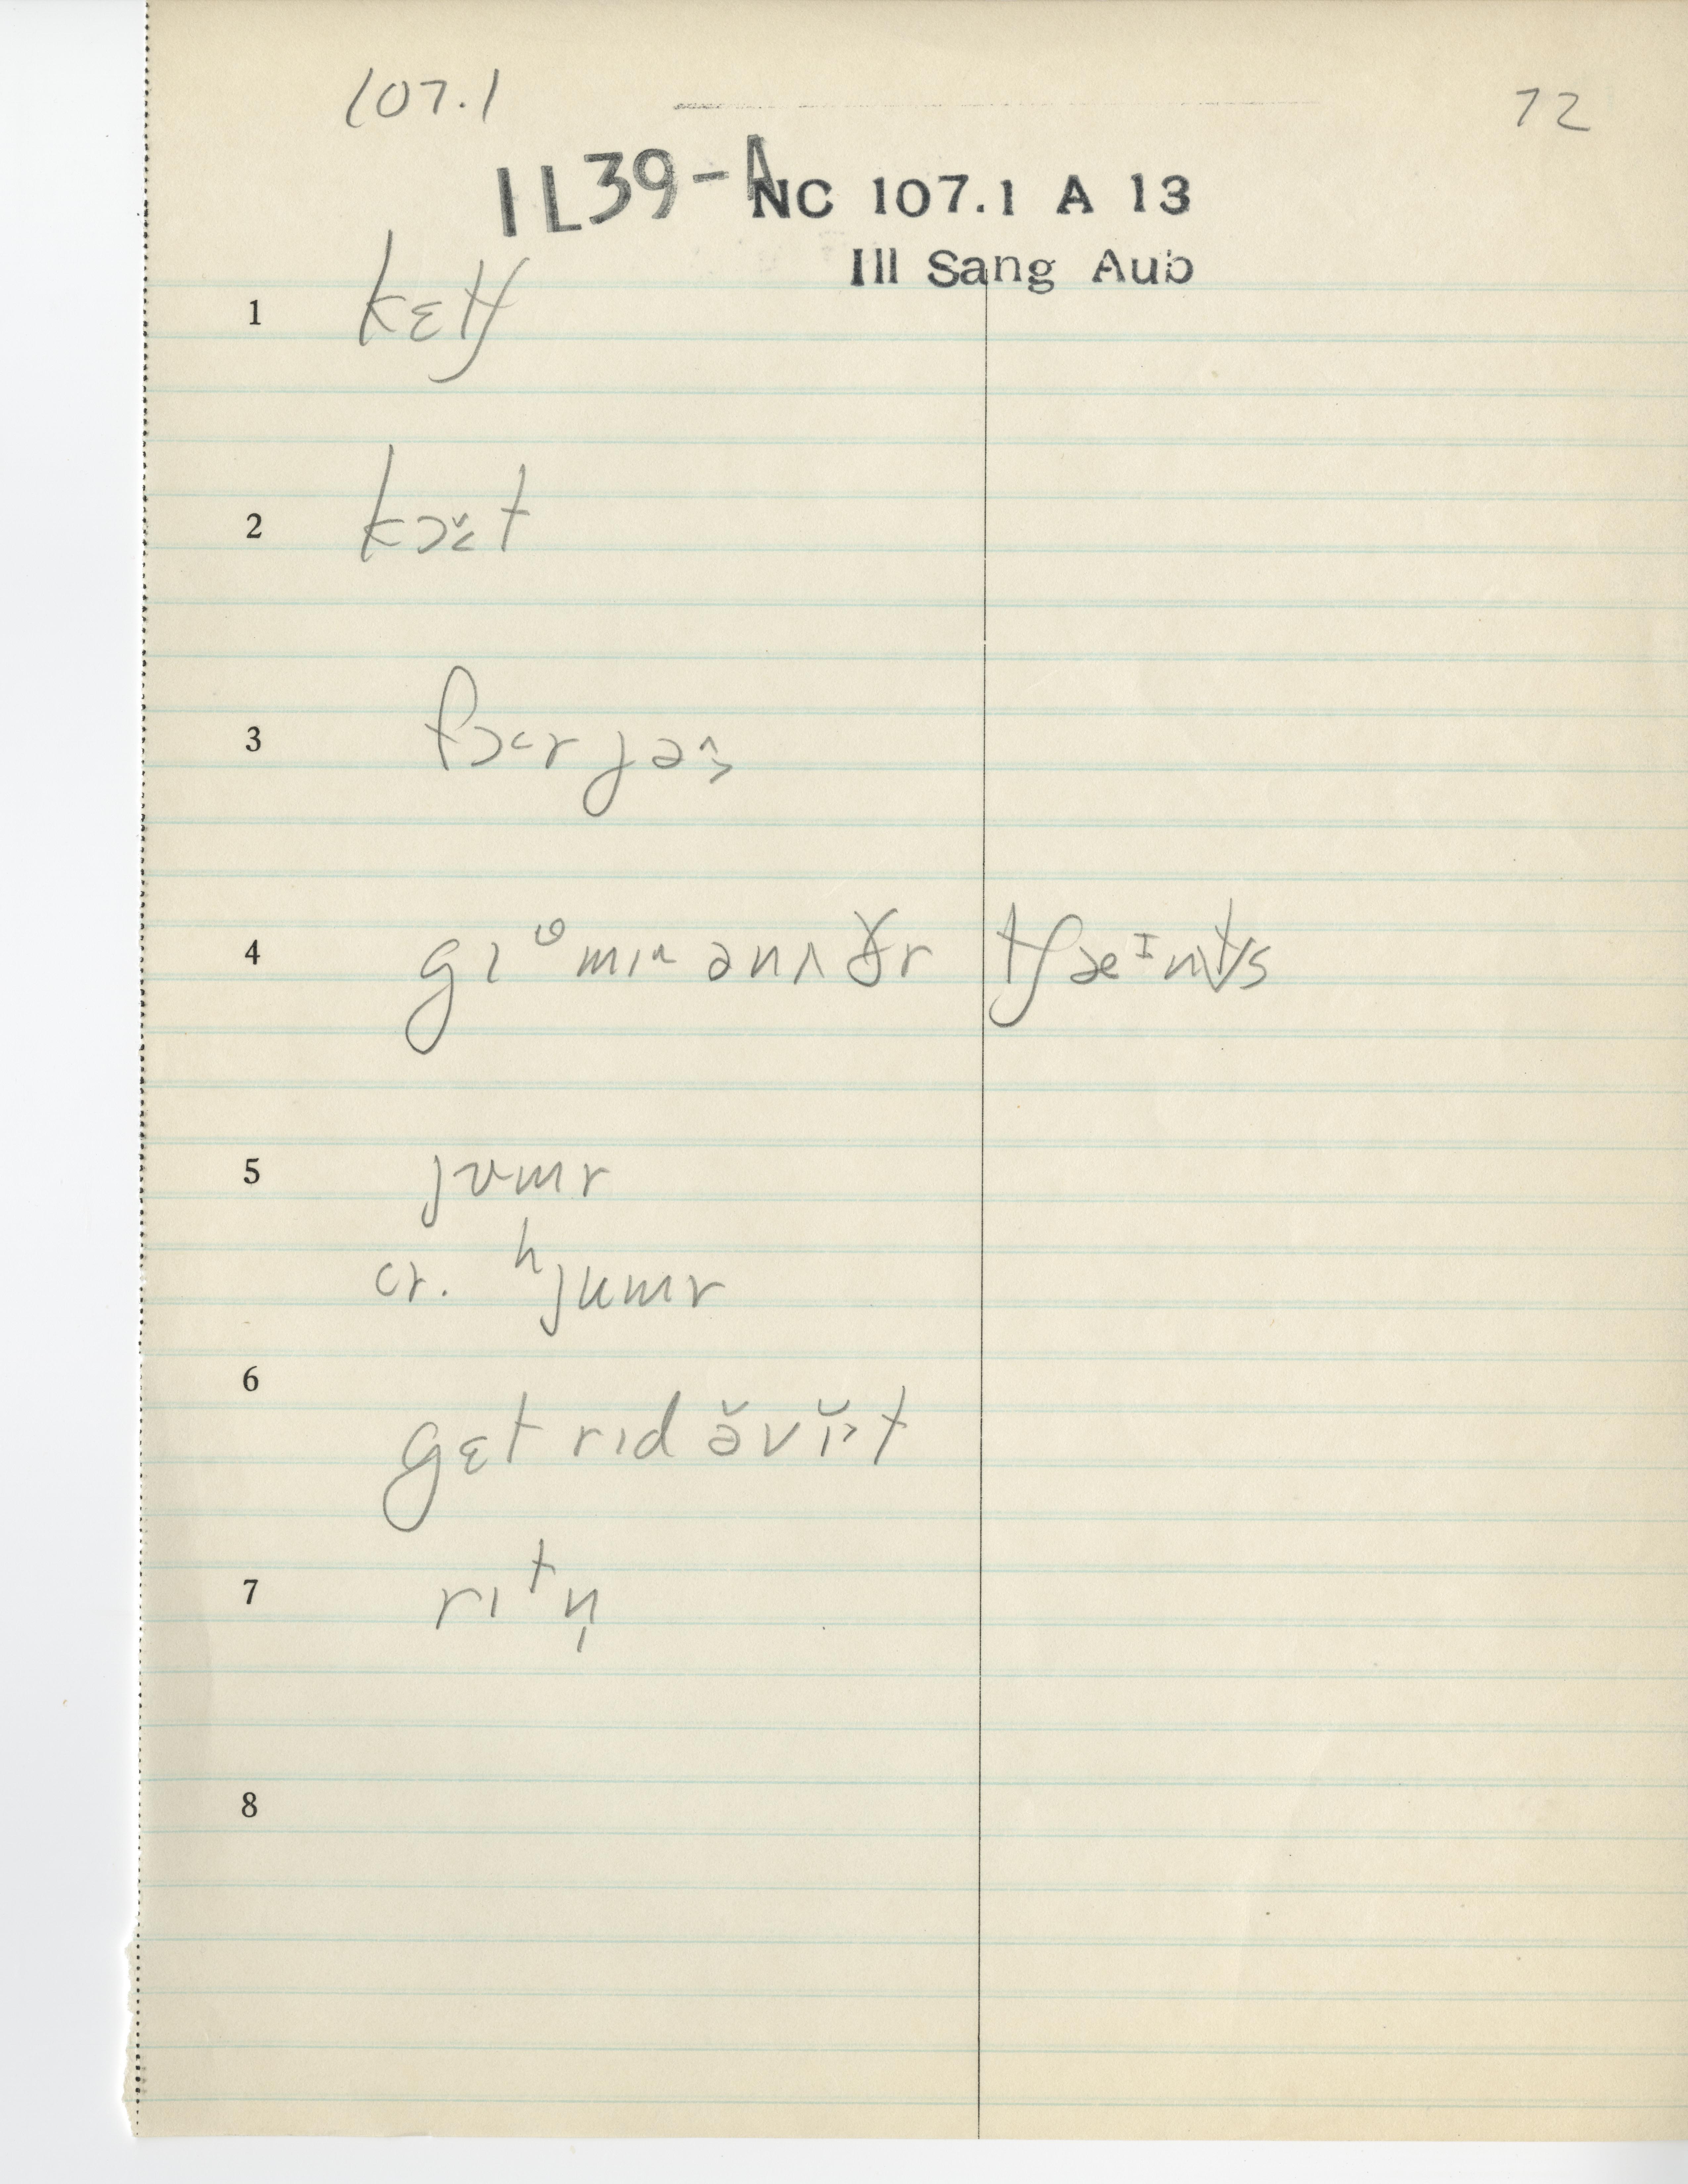 107.1
72
IL39-A
NC 107.1 A 13
Ill Sang Aub
1 kɛtʃ
2 kɔt
3 fɔr jə
4 gɪᵊmɪn ənʌðr tʃæᴵnts
5 jʊmr
cr. ʰjumr
6 gɛt rɪd ə̆v ɪ̆t
7 rɪᵗn̩
8